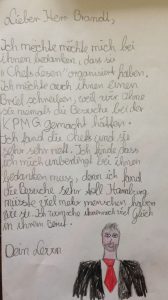 Lieber Herr Brandl,
Ich möchte möchte mich bei
ihnen bedanken, das so
"Chefs lesen" organisiert haben.
Ich möchte auch ihnen einen
Brief schreiben, weil wir ohne
sie niemals die Besuche bei der
KPMG gemacht hätten.
Ich fand die Chefs und sie
sehr sehr nett. Ich finde dass
ich mich unbedingt bei ihnen
bedanken muss, denn ich fand
die Besuche sehr toll. Hamburg
müsste viel mehr menschen haben
wie sie. Ich wünsche ihnen noch viel Glück
in ihrem Beruf.
Dein